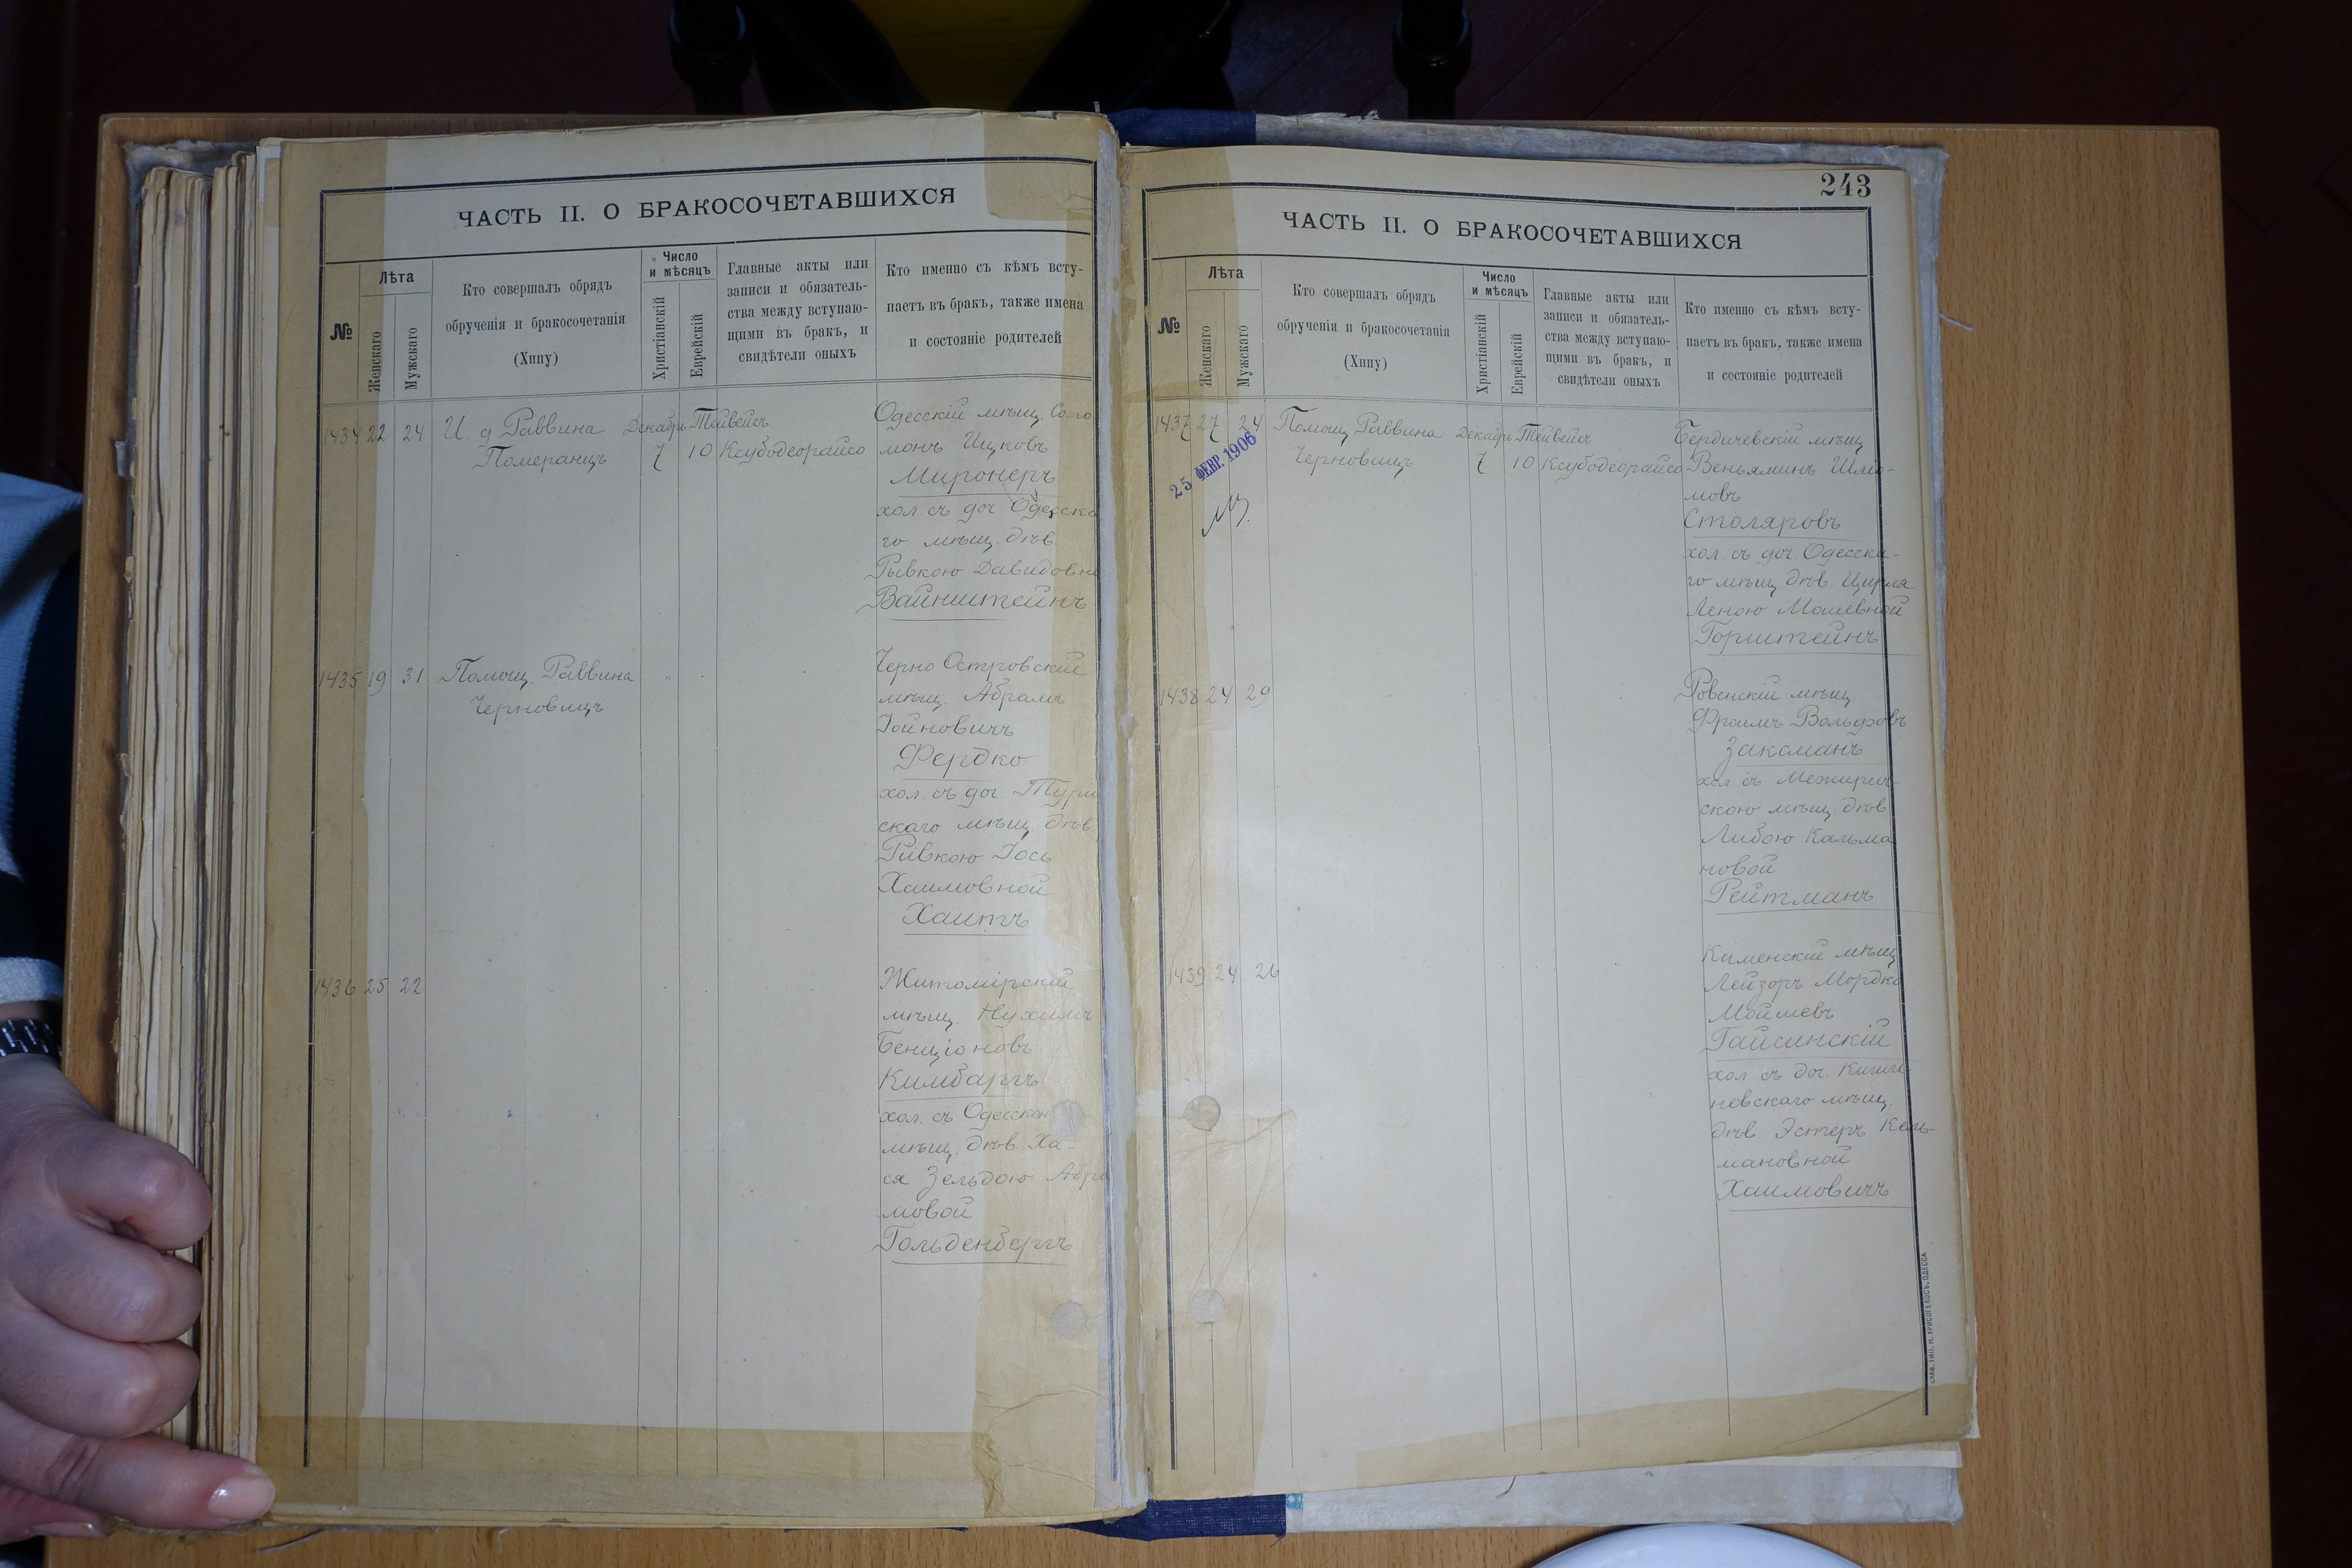 ЧАСТЬ II. О БРАКОСОЧЕТАВШИХСЯ
№
Лѣта
Женскаго
Мужскаго
Кто совершалъ обрядъ
обрученія и бракосочетанія
(Хипу)
Число
и мѣсяцъ
Христіанскій
Еврейскій
Главные акты или
записи и обязатель-
ства между вступаю-
щими въ бракъ, и
свидѣтели оныхъ
Кто именно съ кѣмъ всту-
паетъ въ бракъ, также имена
и состояніе родителей
1434 22 24 И. д. Раввина
Померанцъ
Декабрь Тейвейсъ
7 10 Ксубодеорайсо
Одесскій мѣщ. Соло
монъ Ицковъ
Миронеръ
хол. съ доч. Одесска
го мѣщ. дѣв.
Рывкою Давидовно
Вайнштейнъ
1435 19 31 Помощ. Раввина
Черновицъ
Черно Островскій
мѣщ. Абрамъ
Іойновичъ
Фердко
хол. съ доч.
скаго мѣщ. дѣв.
Ривкою Іось
Хаимовной
Хаитъ
1436 25 22
Житомірскій
мѣщ. Нухимъ
Бенціоновъ
Кимбаргъ
хол. съ Одесскою
мѣщ. дѣв. Ха-
ся Зельдою Абра
мовой
Гольденбергъ
243
ЧАСТЬ II. О БРАКОСОЧЕТАВШИХСЯ
№
Лѣта
Женскаго
Мужскаго
Кто совершалъ обрядъ
обрученія и бракосочетанія
(Хипу)
Число
и мѣсяцъ
Христіанскій
Еврейскій
Главные акты или
записи и обязатель-
ства между вступаю-
щими въ бракъ, и
свидѣтели оныхъ
Кто именно съ кѣмъ всту-
паетъ въ бракъ, также имена
и состояніе родителей
1437 27 24 Помощ. Раввина
Черновицъ
Декабрь Тейвейсъ
7 10 Ксубодеорайсо
25 ФЕВР. 1906
Бердичевскій мѣщ.
Веньяминъ Шліо-
мовъ
Столяровъ
хол. съ доч. Одесска-
го мѣщ. дѣв. Цирля
Леною Мошевной
Горштейнъ
1438 24 29
Ровенскій мѣщ.
Фроимъ Вольфовъ
Заксманъ
хол. съ Межирич-
скою мѣщ. дѣв.
Либою Кальма
новой
Рейтманъ
1439 24 26
мѣщ.
Лейзоръ Мордко
Мойшевъ
Гайсинскій
хол. съ доч. Кишин
невскаго мѣщ.
дѣв. Эстеръ Каль-
мановной
Хаимовичъ
СЛАВ. ТИП. Н. ХРИСОГЕЛОСЪ, ОДЕССА